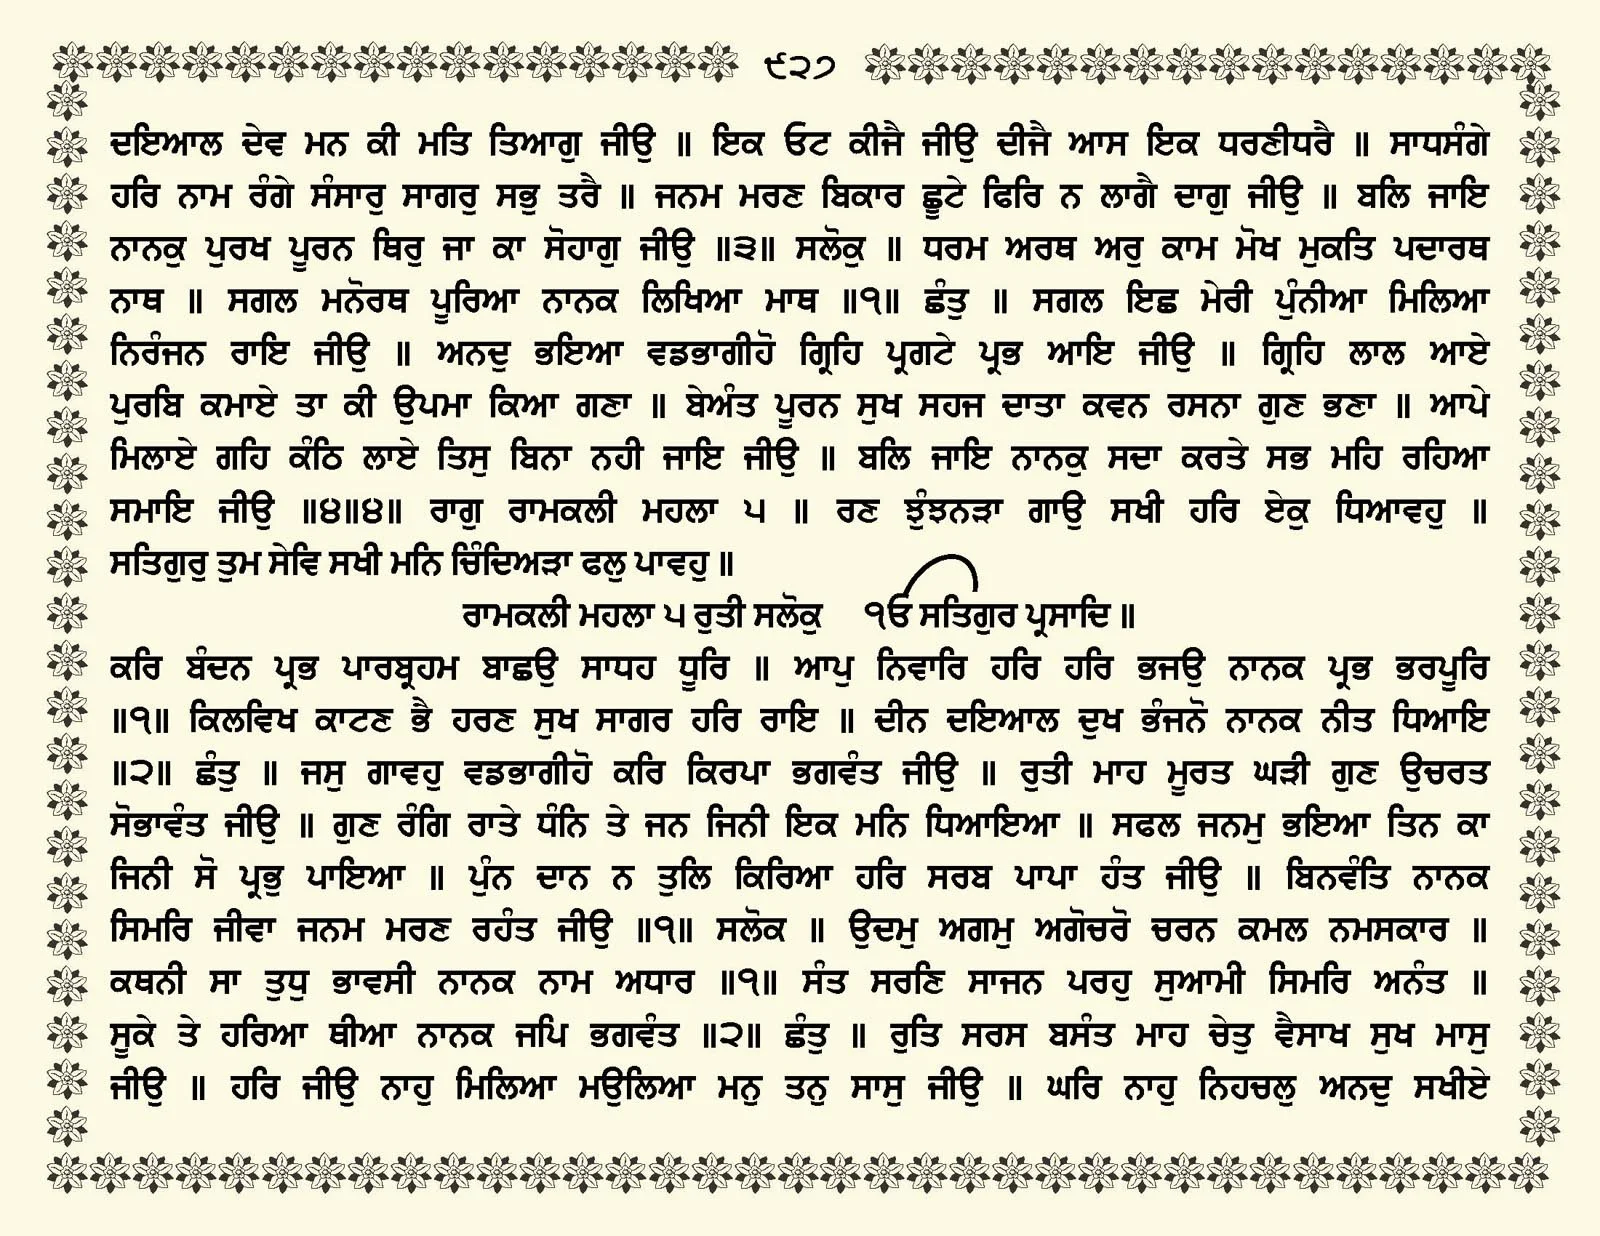 ੯੨੭
ਦਇਆਲ ਦੇਵ ਮਨ ਕੀ ਮਤਿ ਤਿਆਗੁ ਜੀਉ ॥ ਇਕ ਓਟ ਕੀਜੈ ਜੀਉ ਦੀਜੈ ਆਸ ਇਕ ਧਰਣੀਧਰੈ ॥ ਸਾਧਸੰਗੇ
ਹਰਿ ਨਾਮ ਰੰਗੇ ਸੰਸਾਰੁ ਸਾਗਰੁ ਸਭੁ ਤਰੈ ॥ ਜਨਮ ਮਰਣ ਬਿਕਾਰ ਛੂਟੇ ਫਿਰਿ ਨ ਲਾਗੈ ਦਾਗੁ ਜੀਉ ॥ ਬਲਿ ਜਾਇ
ਨਾਨਕੁ ਪੁਰਖ ਪੂਰਨ ਥਿਰੁ ਜਾ ਕਾ ਸੋਹਾਗੁ ਜੀਉ ॥੩॥ ਸਲੋਕੁ ॥ ਧਰਮ ਅਰਥ ਅਰੁ ਕਾਮ ਮੋਖ ਮੁਕਤਿ ਪਦਾਰਥ
ਨਾਥ ॥ ਸਗਲ ਮਨੋਰਥ ਪੂਰਿਆ ਨਾਨਕ ਲਿਖਿਆ ਮਾਥ ॥੧॥ ਛੰਤੁ ॥ ਸਗਲ ਇਛ ਮੇਰੀ ਪੁੰਨੀਆ ਮਿਲਿਆ
ਨਿਰੰਜਨ ਰਾਇ ਜੀਉ ॥ ਅਨਦੁ ਭਇਆ ਵਡਭਾਗੀਹੋ ਗ੍ਰਿਹਿ ਪ੍ਰਗਟੇ ਪ੍ਰਭ ਆਇ ਜੀਉ ॥ ਗ੍ਰਿਹਿ ਲਾਲ ਆਏ
ਪੁਰਬਿ ਕਮਾਏ ਤਾ ਕੀ ਉਪਮਾ ਕਿਆ ਗਣਾ ॥ ਬੇਅੰਤ ਪੂਰਨ ਸੁਖ ਸਹਜ ਦਾਤਾ ਕਵਨ ਰਸਨਾ ਗੁਣ ਭਣਾ ॥ ਆਪੇ
ਮਿਲਾਏ ਗਹਿ ਕੰਠਿ ਲਾਏ ਤਿਸੁ ਬਿਨਾ ਨਹੀ ਜਾਇ ਜੀਉ ॥ ਬਲਿ ਜਾਇ ਨਾਨਕੁ ਸਦਾ ਕਰਤੇ ਸਭ ਮਹਿ ਰਹਿਆ
ਸਮਾਇ ਜੀਉ ॥੪॥੪॥ ਰਾਗੁ ਰਾਮਕਲੀ ਮਹਲਾ ੫ ॥ ਰਣ ਝੁੰਝਨੜਾ ਗਾਉ ਸਖੀ ਹਰਿ ਏਕੁ ਧਿਆਵਹੁ ॥
ਸਤਿਗੁਰੁ ਤੁਮ ਸੇਵਿ ਸਖੀ ਮਨਿ ਚਿੰਦਿਅੜਾ ਫਲੁ ਪਾਵਹੁ ॥
ਰਾਮਕਲੀ ਮਹਲਾ ੫ ਰੁਤੀ ਸਲੋਕੁ ੴ ਸਤਿਗੁਰ ਪ੍ਰਸਾਦਿ ॥
ਕਰਿ ਬੰਦਨ ਪ੍ਰਭ ਪਾਰਬ੍ਰਹਮ ਬਾਛਉ ਸਾਧਹ ਧੂਰਿ ॥ ਆਪੁ ਨਿਵਾਰਿ ਹਰਿ ਹਰਿ ਭਜਉ ਨਾਨਕ ਪ੍ਰਭ ਭਰਪੂਰਿ
॥੧॥ ਕਿਲਵਿਖ ਕਾਟਣ ਭੈ ਹਰਣ ਸੁਖ ਸਾਗਰ ਹਰਿ ਰਾਇ ॥ ਦੀਨ ਦਇਆਲ ਦੁਖ ਭੰਜਨੋ ਨਾਨਕ ਨੀਤ ਧਿਆਇ
॥੨॥ ਛੰਤੁ ॥ ਜਸੁ ਗਾਵਹੁ ਵਡਭਾਗੀਹੋ ਕਰਿ ਕਿਰਪਾ ਭਗਵੰਤ ਜੀਉ ॥ ਰੁਤੀ ਮਾਹ ਮੂਰਤ ਘੜੀ ਗੁਣ ਉਚਰਤ
ਸੋਭਾਵੰਤ ਜੀਉ ॥ ਗੁਣ ਰੰਗਿ ਰਾਤੇ ਧੰਨਿ ਤੇ ਜਨ ਜਿਨੀ ਇਕ ਮਨਿ ਧਿਆਇਆ ॥ ਸਫਲ ਜਨਮੁ ਭਇਆ ਤਿਨ ਕਾ
ਜਿਨੀ ਸੋ ਪ੍ਰਭੁ ਪਾਇਆ ॥ ਪੁੰਨ ਦਾਨ ਨ ਤੁਲਿ ਕਿਰਿਆ ਹਰਿ ਸਰਬ ਪਾਪਾ ਹੰਤ ਜੀਉ ॥ ਬਿਨਵੰਤਿ ਨਾਨਕ
ਸਿਮਰਿ ਜੀਵਾ ਜਨਮ ਮਰਣ ਰਹੰਤ ਜੀਉ ॥੧॥ ਸਲੋਕ ॥ ਉਦਮੁ ਅਗਮੁ ਅਗੋਚਰੋ ਚਰਨ ਕਮਲ ਨਮਸਕਾਰ ॥
ਕਥਨੀ ਸਾ ਤੁਧੁ ਭਾਵਸੀ ਨਾਨਕ ਨਾਮ ਅਧਾਰ ॥੧॥ ਸੰਤ ਸਰਣਿ ਸਾਜਨ ਪਰਹੁ ਸੁਆਮੀ ਸਿਮਰਿ ਅਨੰਤ ॥
ਸੂਕੇ ਤੇ ਹਰਿਆ ਥੀਆ ਨਾਨਕ ਜਪਿ ਭਗਵੰਤ ॥੨॥ ਛੰਤੁ ॥ ਰੁਤਿ ਸਰਸ ਬਸੰਤ ਮਾਹ ਚੇਤੁ ਵੈਸਾਖ ਸੁਖ ਮਾਸੁ
ਜੀਉ ॥ ਹਰਿ ਜੀਉ ਨਾਹੁ ਮਿਲਿਆ ਮਉਲਿਆ ਮਨੁ ਤਨੁ ਸਾਸੁ ਜੀਉ ॥ ਘਰਿ ਨਾਹੁ ਨਿਹਚਲੁ ਅਨਦੁ ਸਖੀਏ